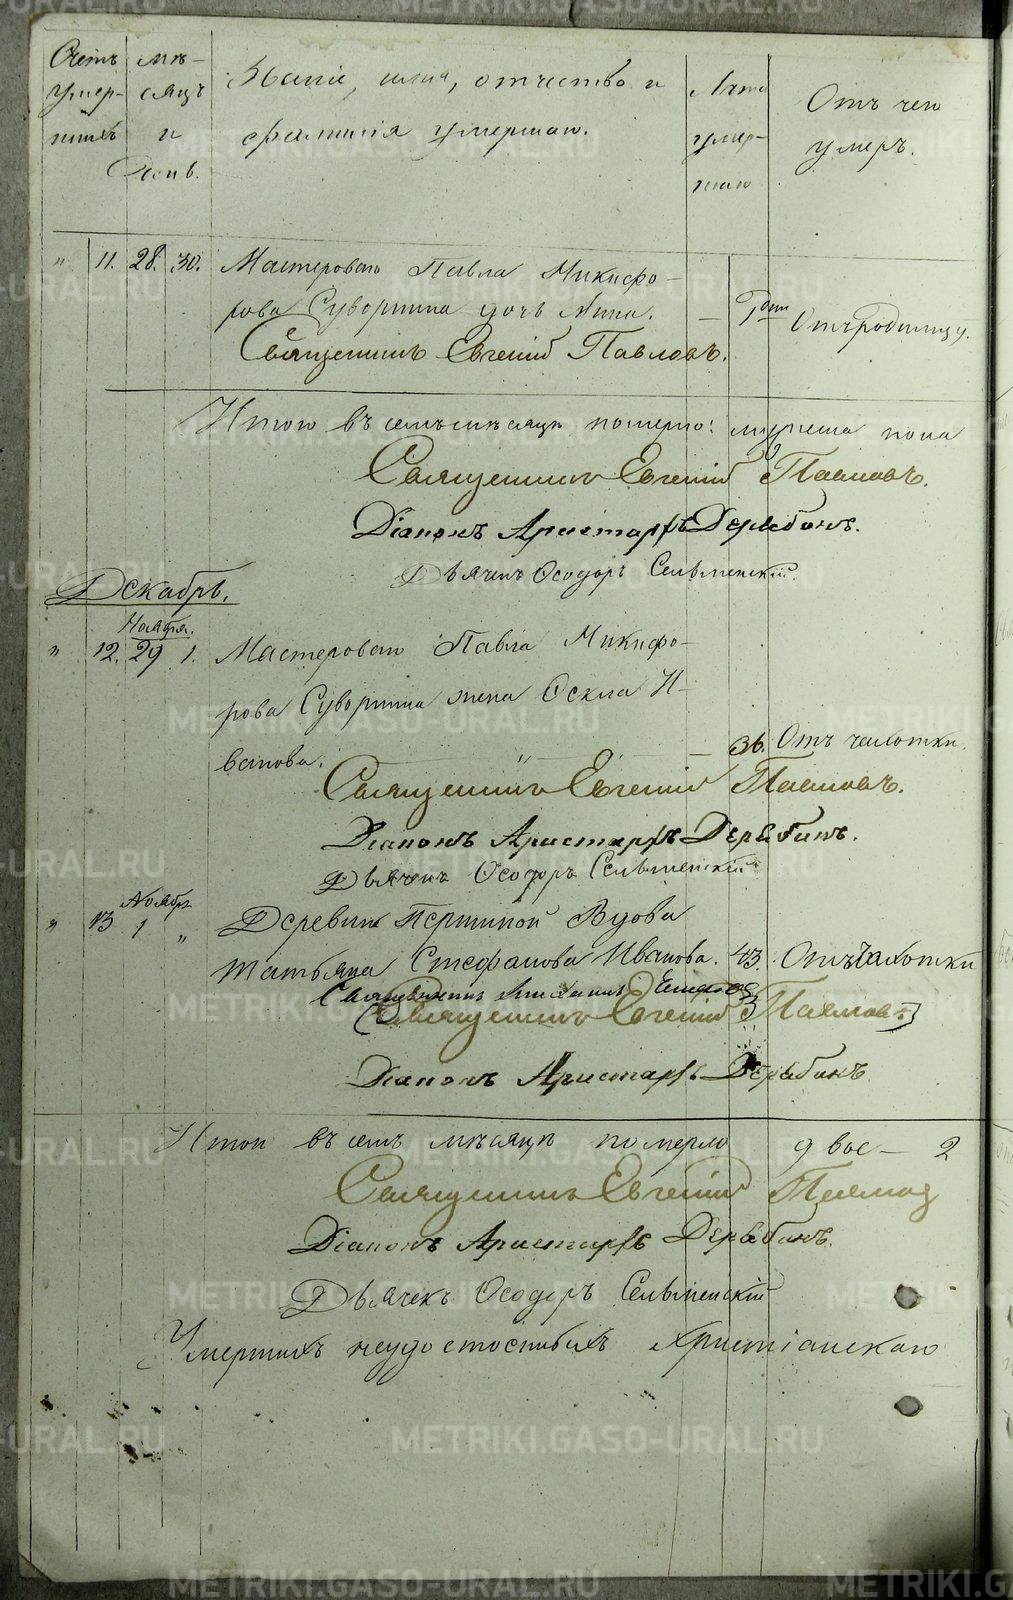 Счетъ умер-шихъ
мѣ-сяцъ и день.
Званіе, имя, отчество и
фамилія умершаго.
Лѣта умер-шаго
Отъ чего
умеръ.
" 11. 28. 30. Мастероваго Павла Никифо-
рова Суворгина дочь Анна. — 7 дни Отъ родимцу.
Священникъ Евгеній Павловъ.
Итого въ семъ мѣсяцѣ померло: мужеска пола
Священникъ Евгеній Павловъ.
Діаконъ Аристархъ Дерябинъ.
Дьячекъ Ѳеодоръ Сельменскій.
Декабрь.
Ноября.
" 12. 29 1. Мастероваго Павла Никифо-
рова Суворгина жена Ѳекла И-
ванова. — 36. Отъ чахотки.
Священникъ Евгеній Павловъ.
Діаконъ Аристархъ Дерябинъ.
Дьячекъ Ѳеодоръ Сельменскій
Ноябр.
" 13 1 " Деревни Першиной Вдова
Татьяна Стефанова Иванова. 43. Отъ чахотки
Священникъ
(Священникъ Евгеній Павловъ)
Діаконъ Аристархъ Дерябинъ.
Итого въ семъ мѣсяцѣ померло двое — 2
Священникъ Евгеній Павлов
Діаконъ Аристархъ Дерябинъ.
Дьячекъ Ѳеодоръ Сельменскій
Умершихъ неудостоенныхъ христіанскаго
METRIKI.GASO-URAL.RU